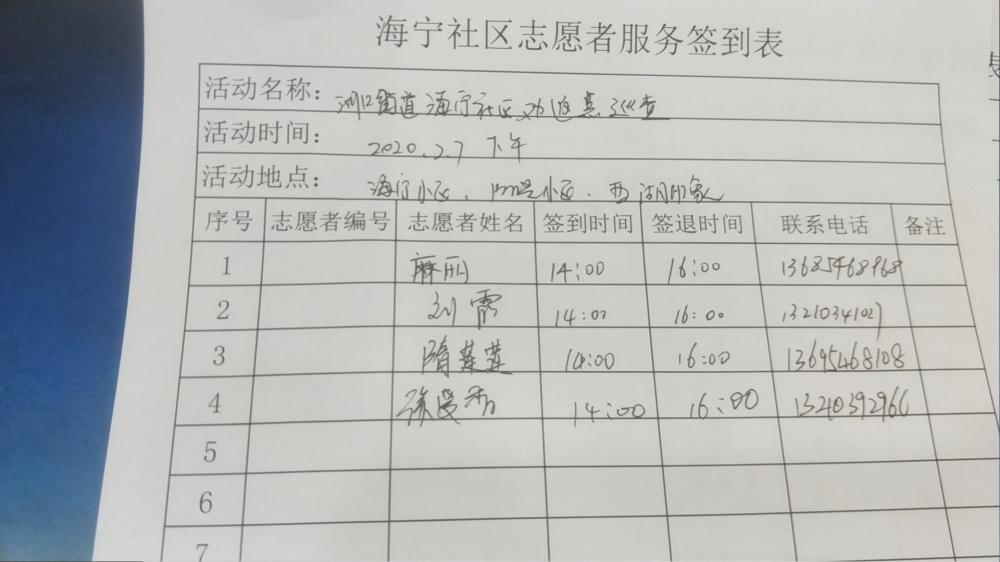 海宁社区志愿者服务签到表
活动名称：河口街道海宁社区劝返点巡查
活动时间：2020.2.7 下午
活动地点：海宁小区、小区、西湖印象
序号 志愿者编号 志愿者姓名 签到时间 签退时间 联系电话 备注
1 麻丽 14:00 16:00 13685468968
2 刘霄 14:00 16:00 13210341027
3 隋莲莲 14:00 16:00 13695468108
4 14:00 16:00
5
6
7